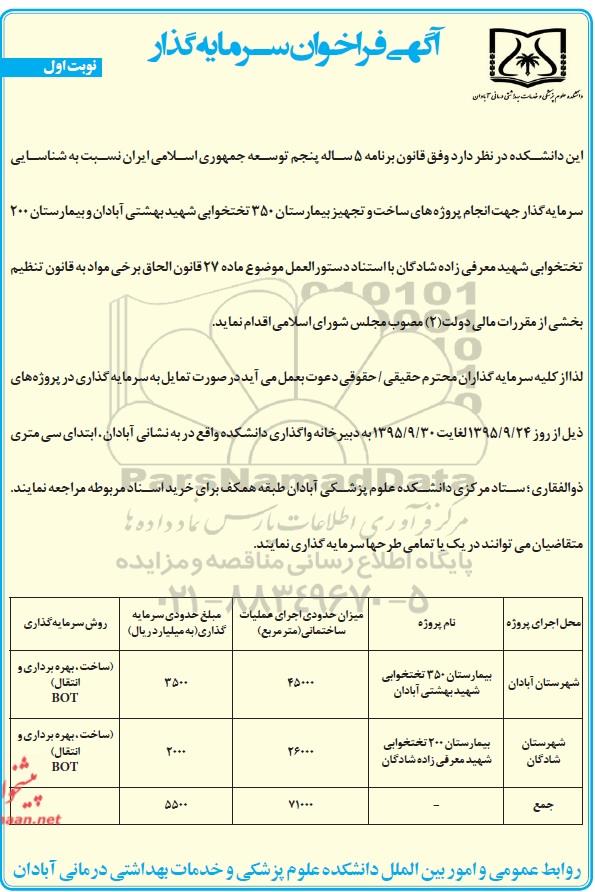 آگهی فراخوان سرمایه گذار
نوبت اول
دانشکده علوم پزشکی و خدمات بهداشتی درمانی آبادان
این دانشکده در نظر دارد وفق قانون برنامه ۵ ساله پنجم توسعه جمهوری اسلامی ایران نسبت به شناسایی
سرمایه گذار جهت انجام پروژه های ساخت و تجهیز بیمارستان ۳۵۰ تختخوابی شهید بهشتی آبادان و بیمارستان ۲۰۰
تختخوابی شهید معرفی زاده شادگان با استناد دستورالعمل موضوع ماده ۲۷ قانون الحاق برخی مواد به قانون تنظیم
بخشی از مقررات مالی دولت (۲) مصوب مجلس شورای اسلامی اقدام نماید.
لذا از کلیه سرمایه گذاران محترم حقیقی / حقوقی دعوت بعمل می آید در صورت تمایل به سرمایه گذاری در پروژه های
ذیل از روز ۱۳۹۵/۹/۲۴ لغایت ۱۳۹۵/۹/۳۰ به دبیرخانه واگذاری دانشکده واقع در به نشانی آبادان ، ابتدای سی متری
ذوالفقاری ؛ ستاد مرکزی دانشکده علوم پزشکی آبادان طبقه همکف برای خرید اسناد مربوطه مراجعه نمایند.
متقاضیان می توانند در یک یا تمامی طرحها سرمایه گذاری نمایند.
ParsNamadData
مرکز فرآوری اطلاعات پارس نماد داده ها
پایگاه اطلاع رسانی مناقصه و مزایده
۰۲۱-۸۸۳۴۹۶۷۰-۵
محل اجرای پروژه | نام پروژه | میزان حدودی اجرای عملیات ساختمانی (متر مربع) | مبلغ حدودی سرمایه گذاری (به میلیارد ریال) | روش سرمایه گذاری
شهرستان آبادان | بیمارستان ۳۵۰ تختخوابی شهید بهشتی آبادان | ۴۵۰۰۰ | ۳۵۰۰ | (ساخت ، بهره برداری و انتقال) BOT
شهرستان شادگان | بیمارستان ۲۰۰ تختخوابی شهید معرفی زاده شادگان | ۲۶۰۰۰ | ۲۰۰۰ | (ساخت ، بهره برداری و انتقال) BOT
جمع | - | ۷۱۰۰۰ | ۵۵۰۰
روابط عمومی و امور بین الملل دانشکده علوم پزشکی و خدمات بهداشتی درمانی آبادان